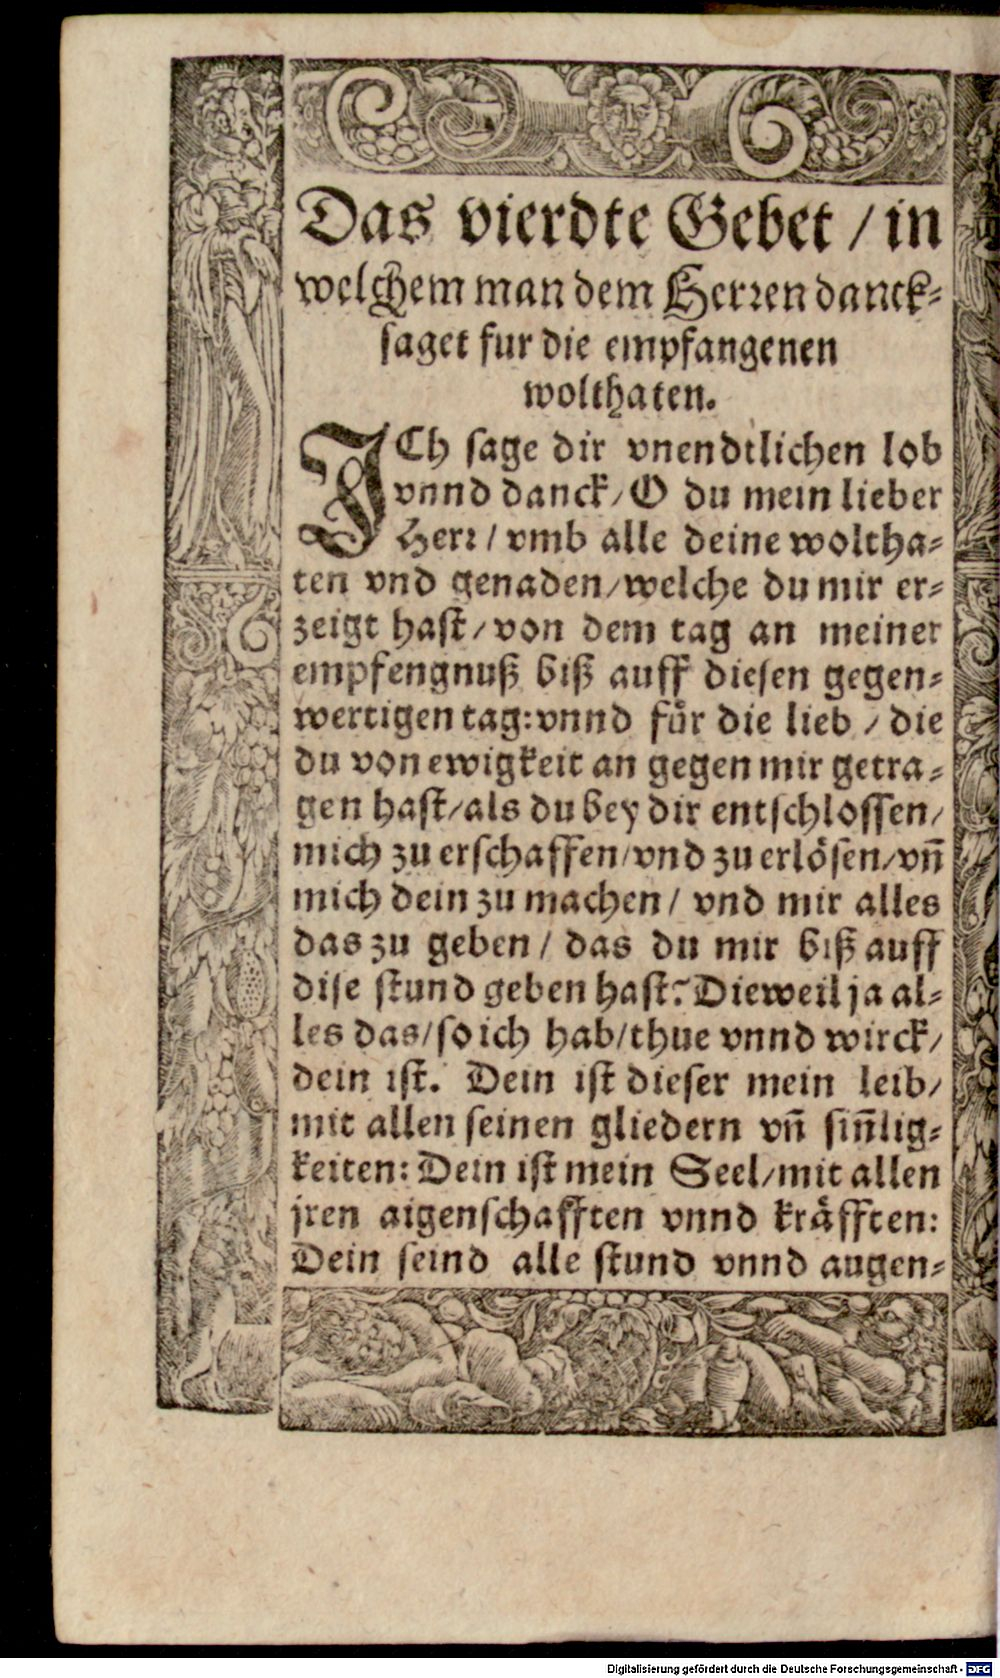 Das vierdte Gebet / in
welchem man dem Herren danck⸗
saget fur die empfangenen
wolthaten.
ICh sage dir vnendtlichen lob
vnnd danck / O du mein lieber
Herr / vmb alle deine woltha⸗
ten vnd genaden / welche du mir er⸗
zeigt hast / von dem tag an meiner
empfengnuß biß auff diesen gegen⸗
wertigen tag: vnnd fuͤr die lieb / die
du von ewigkeit an gegen mir getra⸗
gen hast / als du bey dir entschlossen /
mich zu erschaffen / vnd zu erlösen / vñ
mich dein zu machen / vnd mir alles
das zu geben / das du mir biß auff
dise stund geben hast: Dieweil ja al⸗
les das / so ich hab / thue vnnd wirck /
dein ist. Dein ist dieser mein leib /
mit allen seinen gliedern vñ siñlig⸗
keiten: Dein ist mein Seel / mit allen
jren aigenschafften vnnd kraͤfften:
Dein seind alle stund vnnd augen⸗
Digitalisierung gefördert durch die Deutsche Forschungsgemeinschaft - DFG